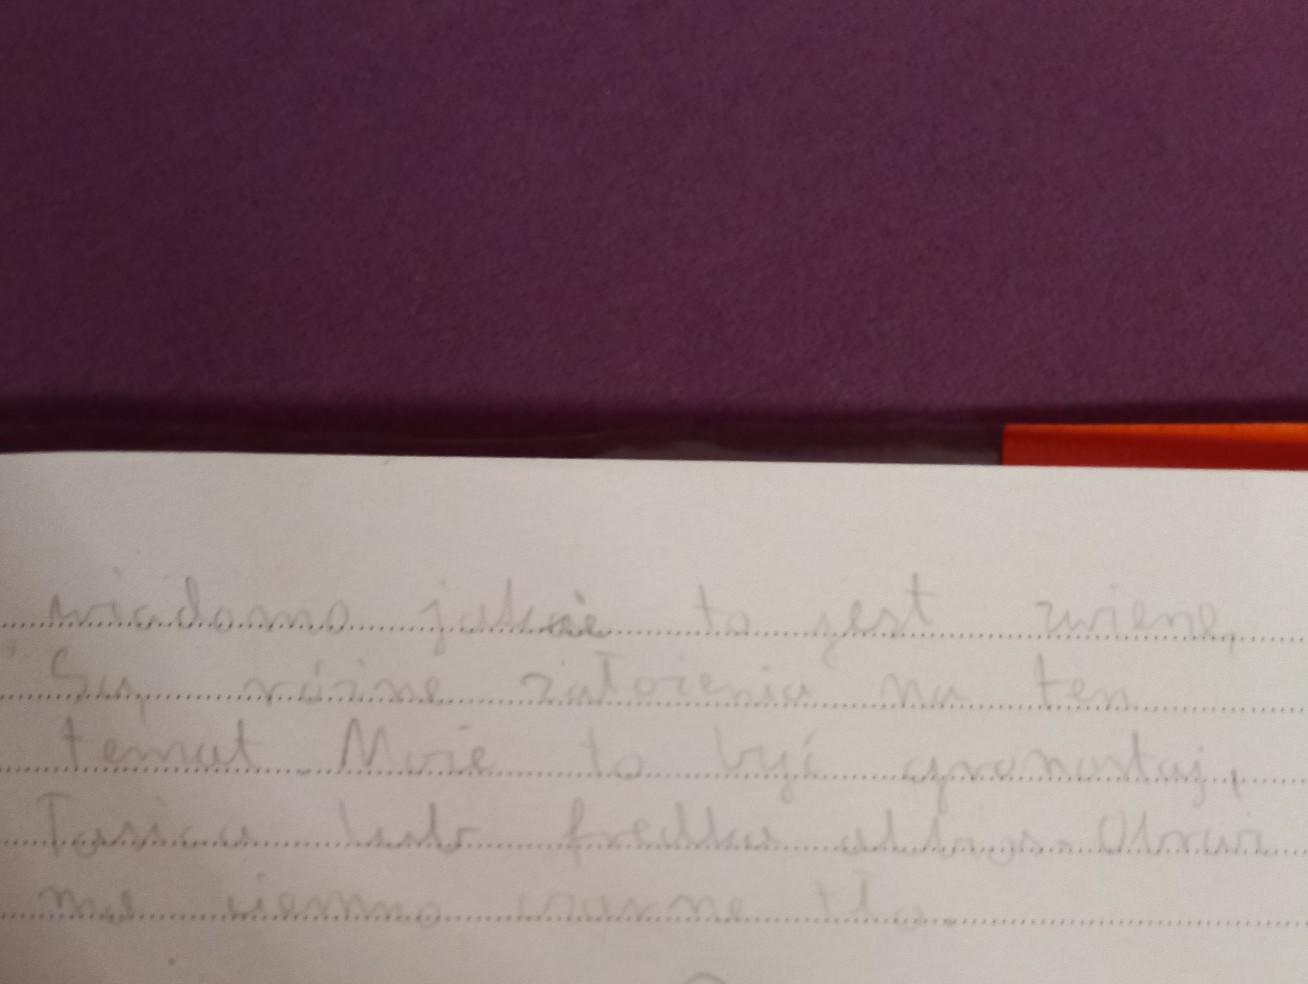 wiadomo jakie to jest zwierze,
Są różne założenia na ten
temat. Może to być gronostaj,
Łasica lub fredka albinos. Obraz
ma ciemno czarne tło.